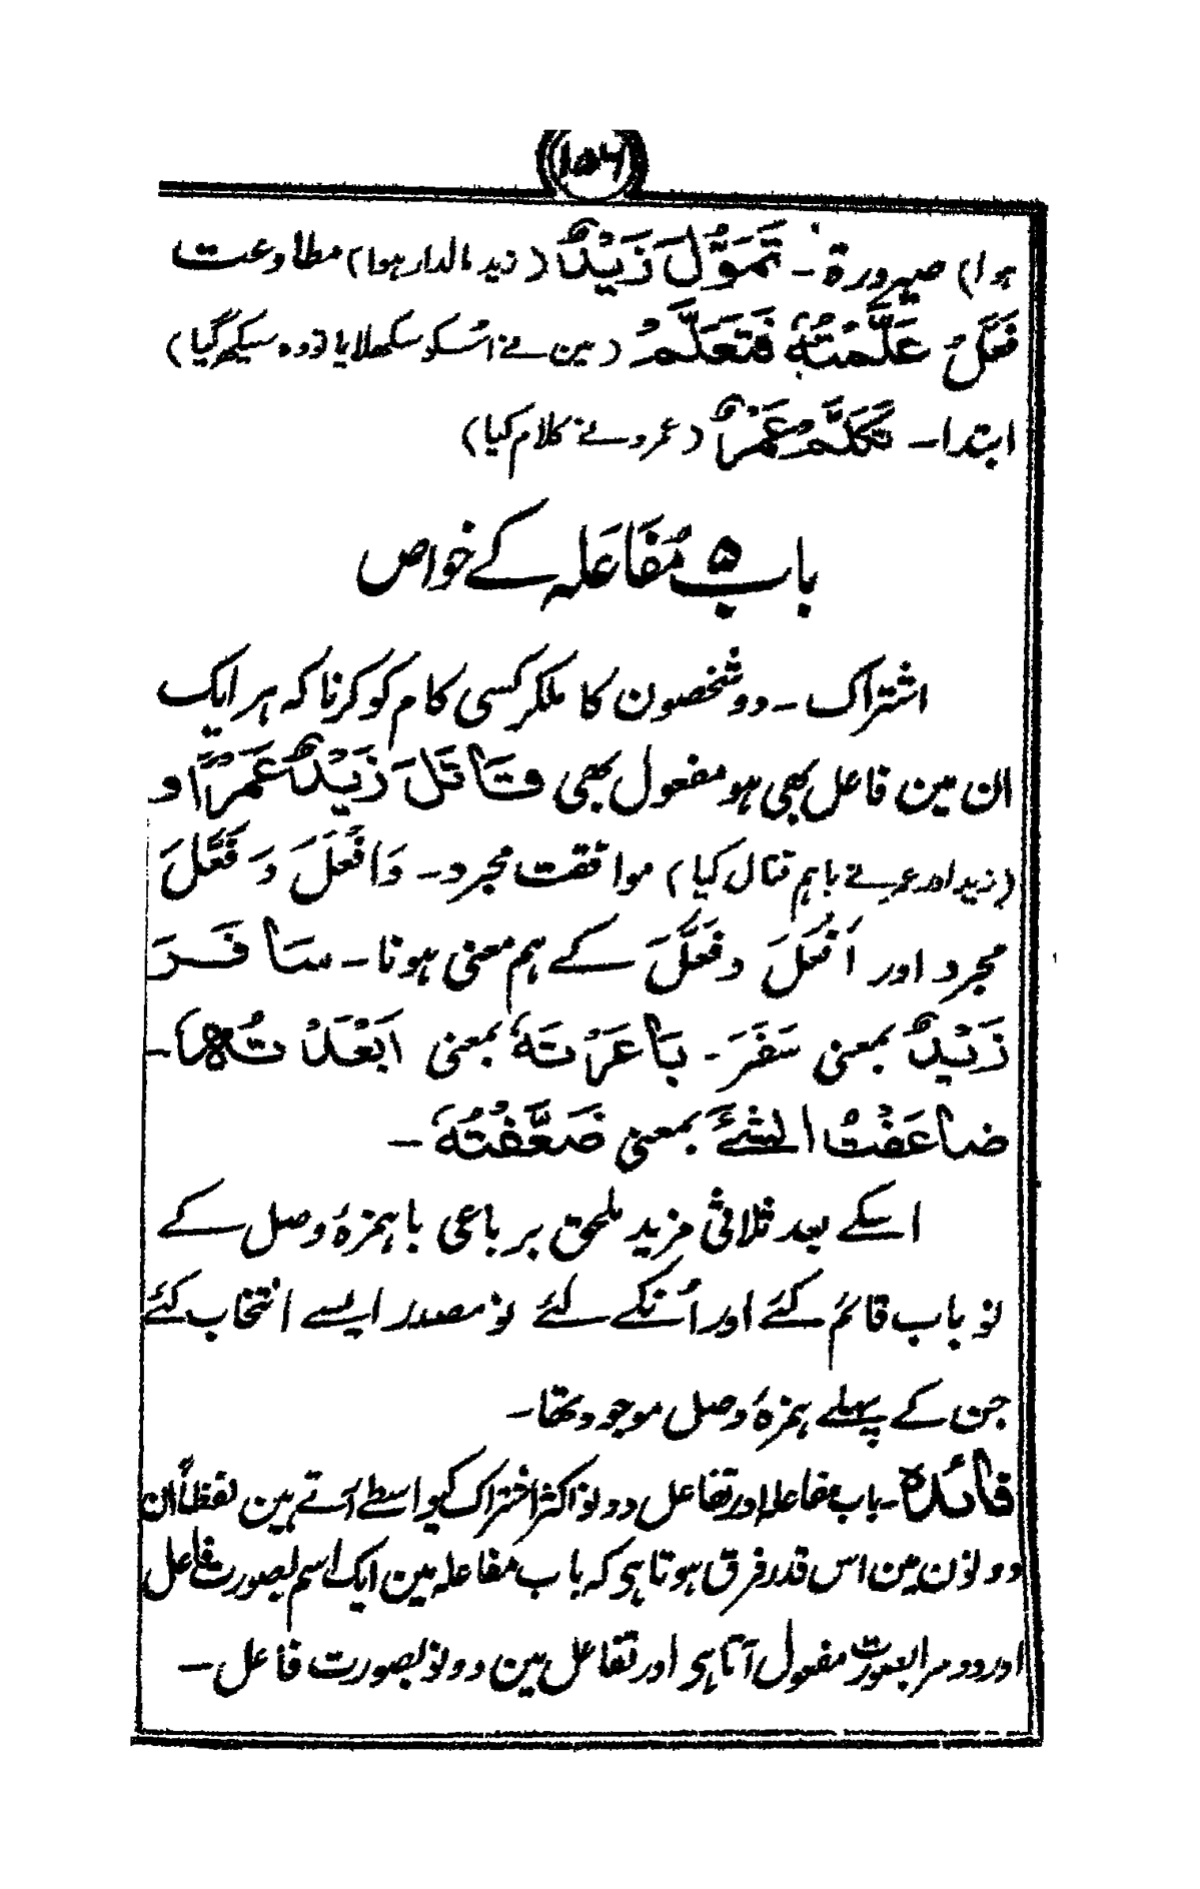 ۱۵۶
ہوا) صیرورۃ۔ تَمَوَّلَ زَیْدٌ (زید مالدار ہوا) مطاوعت
فَعَّلَ عَلَّمْتُهٗ فَتَعَلَّمَ (مین نے اسُکو سکھلایا تو وہ سیکھ گیا)
ابتدا۔ تَکَلَّمَ عَمْرٌ (عمرو نے کلام کیا)
باب ۵ مُفَاعَلہ کے خواص
اشتراک۔ دو شخصون کا ملکر کسی کام کو کرنا کہ ہر ایک
ان مین فاعل بھی ہو مفعول بھی قَاتَلَ زَیْدٌ عَمْرًا و
(زید اور عمرنے باہم قتال کیا) موافقت مجرد۔ وَاَفْعَلَ وَ فَعَّلَ
مجرد اور اَفْعَلَ و فَعَّلَ کے ہم معنی ہونا۔ سَافَرَ
زَیْدٌ بمعنی سَفَرَ۔ بَاعَدْتَهٗ بمعنی اَبْعَدْتُهٗ۔
ضَاعَفْتُ الشَّیْءَ بمعنی ضَعَّفْتُهٗ۔
اسکے بعد ثلاثی مزید ملحق برباعی باہمزۂ وصل کے
نو باب قائم کئے اور اُنکے لئے نو مصدر ایسے انتخاب کئے
جن کے پہلے ہمزۂ وصل موجود تھا۔
فائدہ۔ باب مفاعلہ اور تفاعل دونو اکثر اشتراک کیواسطے آتے ہین لفظاً ان
دونون مین اس قدر فرق ہوتا ہی کہ باب مفاعلہ مین ایک اسم بصورت فاعل
اور دوسرا بصورت مفعول آتا ہی اور تفاعل مین دونو بصورت فاعل۔